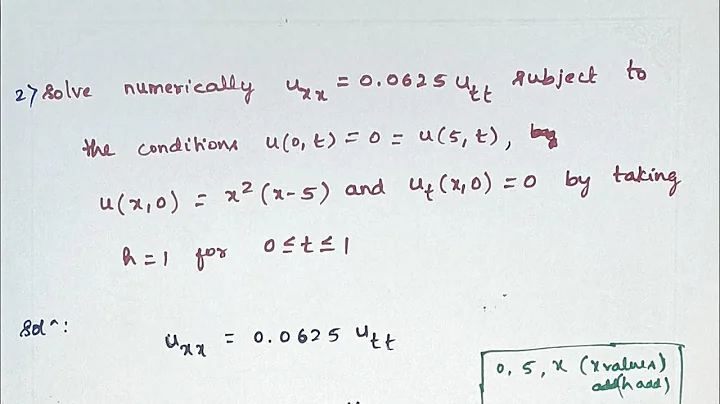 2) Solve numerically u_xx = 0.0625 u_tt subject to
the conditions u(0,t) = 0 = u(5,t), by
u(x,0) = x²(x-5) and u_t(x,0) = 0 by taking
h = 1 for 0 ≤ t ≤ 1
Solⁿ:
u_xx = 0.0625 u_tt
0, 5, x (x values)
add(h add)